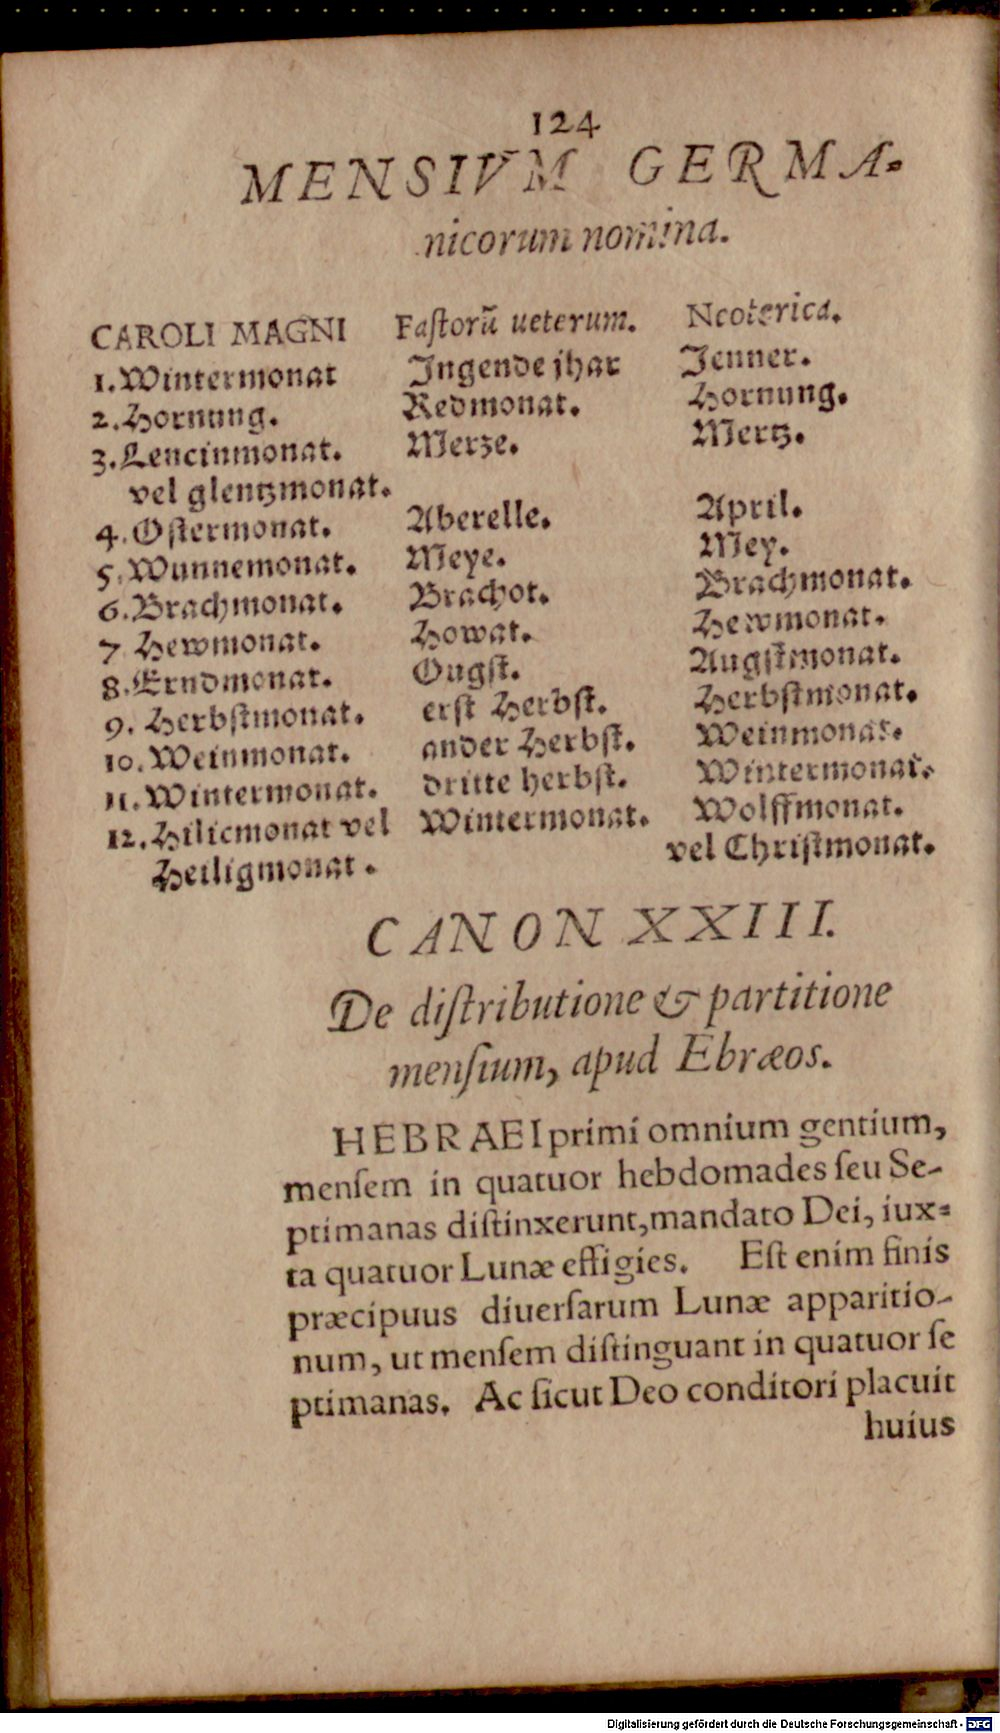 124
MENSIVM GERMA-
nicorum nomina.
CAROLI MAGNI Faſtorũ ueterum. Neoterica.
1. Wintermonat Ingende jhar Jenner.
2. Hornung. Redmonat. Hornung.
3. Lencinmonat. Merze. Mertz.
vel glentzmonat.
4. Oſtermonat. Aberelle. April.
5. Wunnemonat. Meye. Mey.
6. Brachmonat. Brachot. Brachmonat.
7 Hewmonat. Howat. Hewmonat.
8. Erndmonat. Ougſt. Augſtmonat.
9. Herbſtmonat. erſt Herbſt. Herbſtmonat.
10. Weinmonat. ander Herbſt. Weinmonat.
11. Wintermonat. dritte herbſt. Wintermonat.
12. Hilicmonat vel Wintermonat. Wolffmonat.
Heiligmonat. vel Chriſtmonat.
CANON XXIII.
De diſtributione & partitione
menſium, apud Ebræos.
HEBRAEI primi omnium gentium,
menſem in quatuor hebdomades ſeu Se-
ptimanas diſtinxerunt, mandato Dei, iux-
ta quatuor Lunæ effigies. Eſt enim finis
præcipuus diuerſarum Lunæ apparitio-
num, ut menſem diſtinguant in quatuor ſe
ptimanas. Ac ſicut Deo conditori placuit
huius
Digitalisierung gefördert durch die Deutsche Forschungsgemeinschaft - DFG